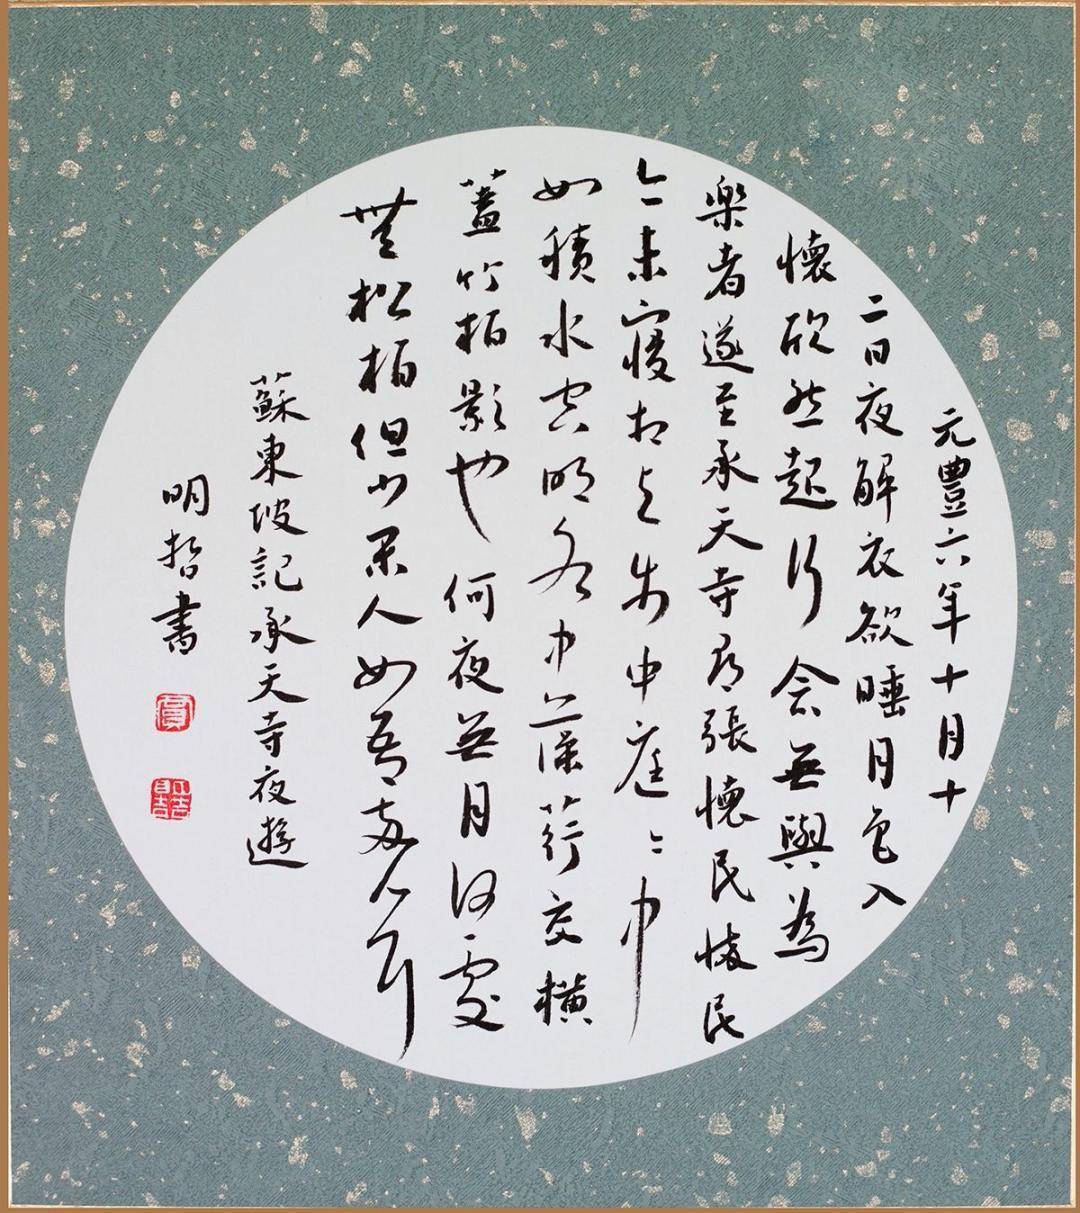 元豐六年十月十
二日夜解衣欲睡月色入
懷欣然起行念無與為
樂者遂至承天寺尋張懷民懷民
亦未寢相與步中庭〻中
如積水空明中藻荇交橫
蓋竹柏影也何夜無月何處
無松柏但少閑人如吾兩人耳
蘇東坡記承天寺夜遊
明哲書